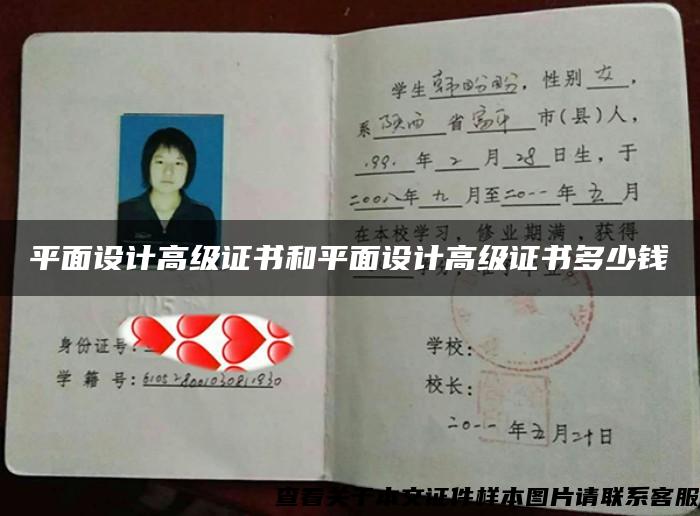 学生韩盼盼，性别女，
系陕西省富平市(县)人，
1991年2月28日生，于
二00八年九月至二0一一年五月
在本校学习，修业期满，获得
平面设计高级证书和平面设计高级证书多少钱
身份证号:
学籍号:610528001030811930
学校:
校长:
二0一一年五月二十日
查看关于本文证件样本图片请联系客服